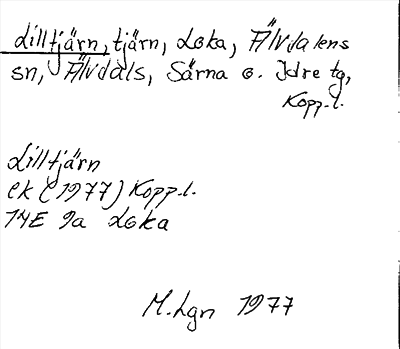 Lilltjärn, tjärn, Loka, Älvdalens
sn, Älvdals, Särna o. Idre tg,
Kopp.l.
Lilltjärn
ek (1977) Kopp.l.
14E 9a Loka
M.Lgn 1977